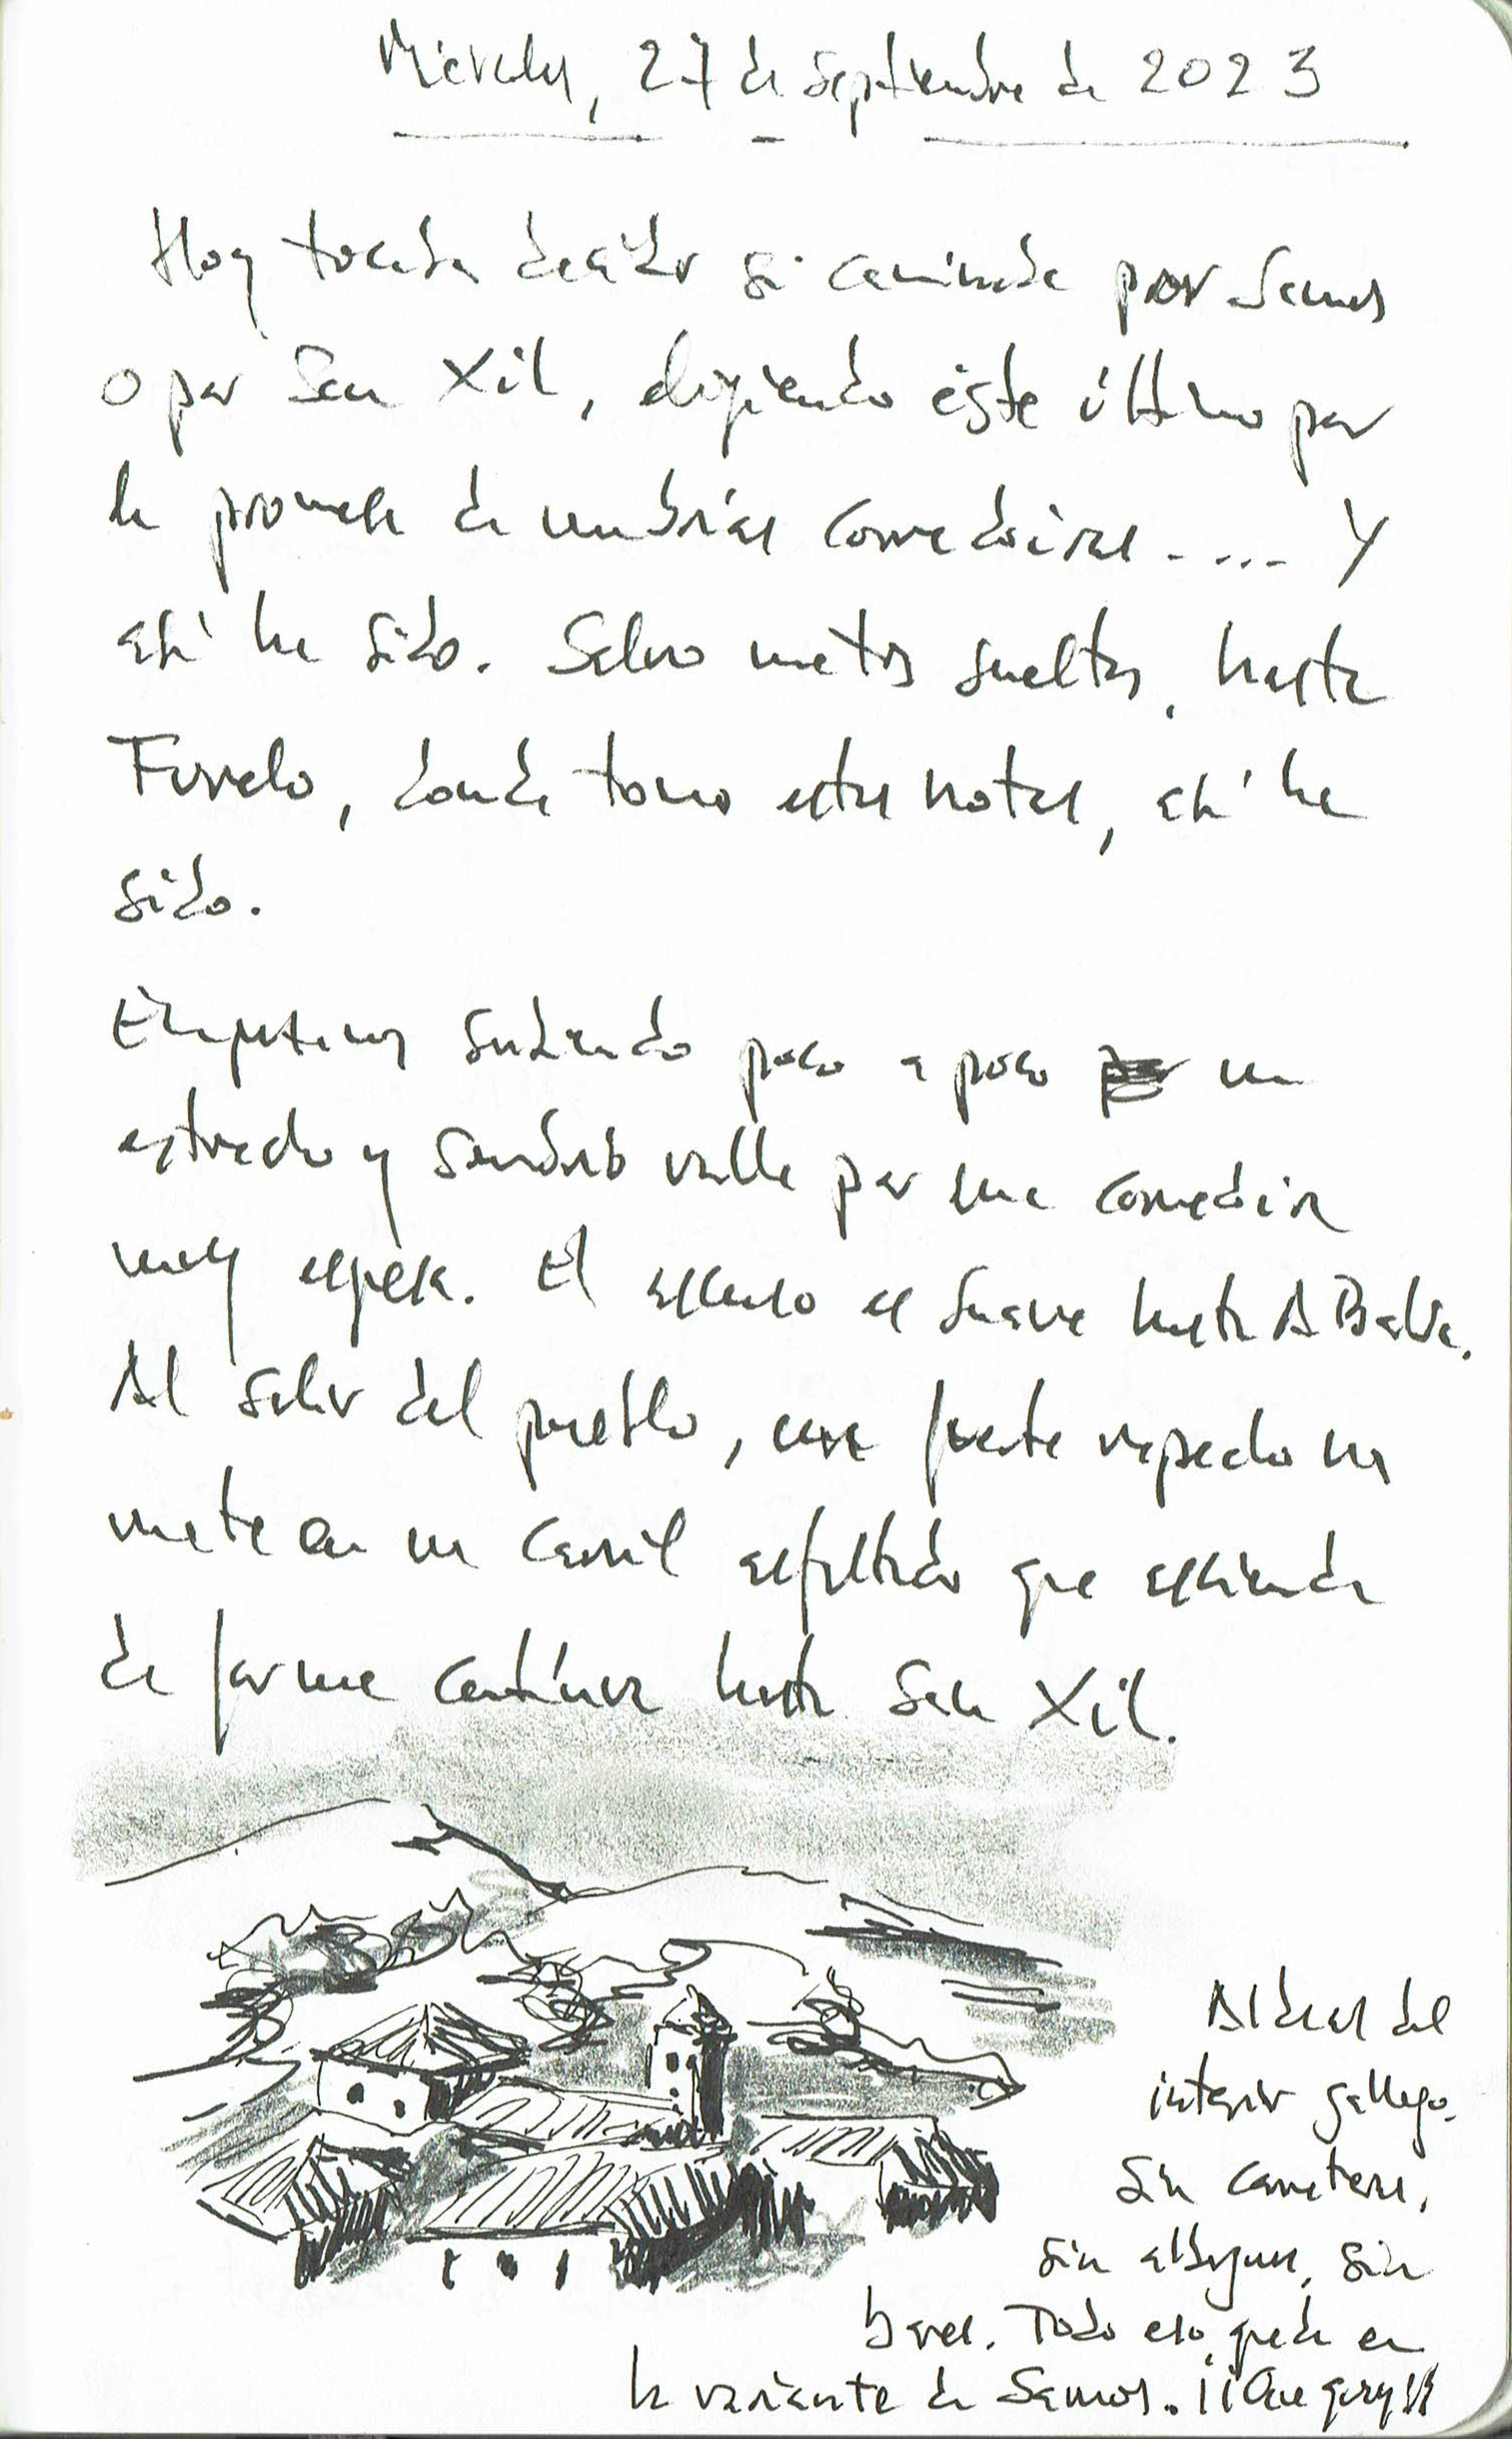 Miércoles, 27 de Septiembre de 2023
Hoy tocaba decidir si caminaba por Samos
o por San Xil, eligiendo éste último por
la promesa de umbrías corredoiras..... Y
así ha sido. Salvo metros sueltos, hasta
Furela, donde tomo estas notas, así ha
sido.
Empezamos subiendo poco a poco un
estrecho y sombrío valle por una corredoira
muy espesa. El ascenso es suave hasta A Balsa.
Al salir del pueblo, una fuerte repecho nos
mete en un carril asfaltado que asciende
de forma contínua hasta San Xil.
Aldeas del
interior gallego.
Sin carretera,
sin albergues, sin
bares. Todo eso queda en
la variante de Samos. ¡¡Que gozo!!